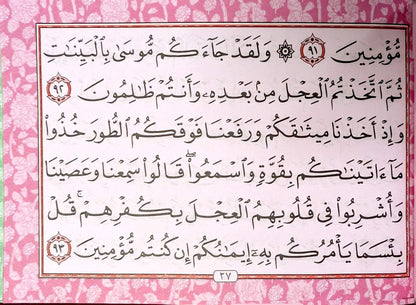 مُّؤْمِنِينَ ٩١ ۞ وَلَقَدْ جَآءَكُم مُّوسَىٰ بِٱلْبَيِّنَٰتِ
ثُمَّ ٱتَّخَذْتُمُ ٱلْعِجْلَ مِنۢ بَعْدِهِۦ وَأَنتُمْ ظَٰلِمُونَ ٩٢
وَإِذْ أَخَذْنَا مِيثَٰقَكُمْ وَرَفَعْنَا فَوْقَكُمُ ٱلطُّورَ خُذُوا۟
مَآ ءَاتَيْنَٰكُم بِقُوَّةٍ وَٱسْمَعُوا۟ ۖ قَالُوا۟ سَمِعْنَا وَعَصَيْنَا
وَأُشْرِبُوا۟ فِى قُلُوبِهِمُ ٱلْعِجْلَ بِكُفْرِهِمْ ۚ قُلْ
بِئْسَمَا يَأْمُرُكُم بِهِۦٓ إِيمَٰنُكُمْ إِن كُنتُم مُّؤْمِنِينَ ٩٣
٢٧